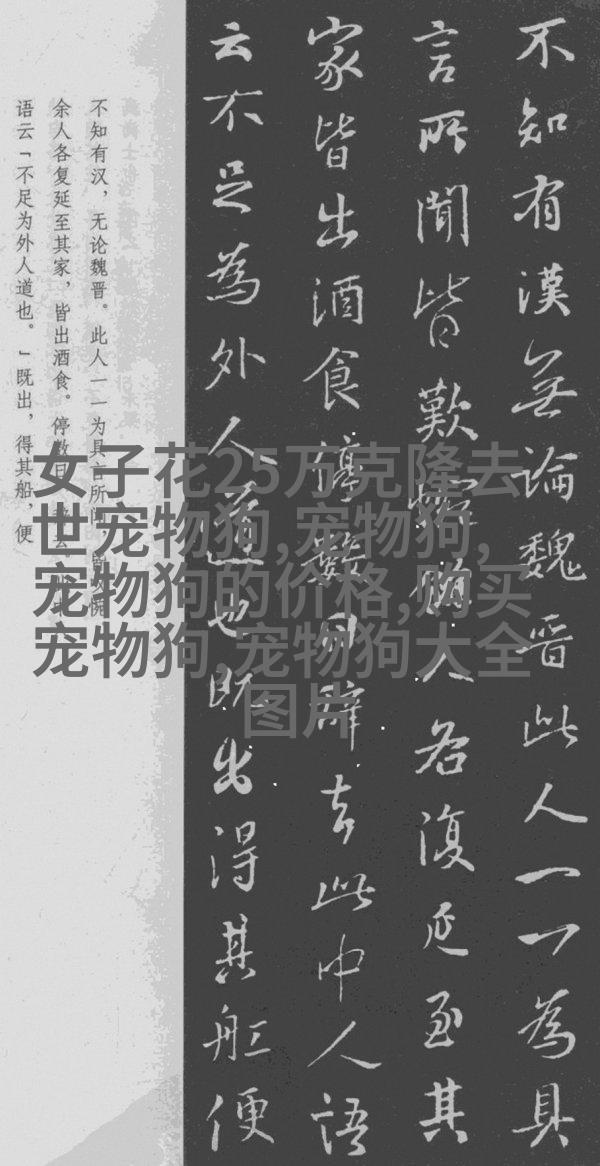 不知有漢無論魏晋此人一一為具
言所聞皆歎惋餘人各復延至其
家皆出酒食停數日辭去此中人語
云不足為外人道也既出得其船便
不知有汉，无论魏晋。此人一一为具言所闻，皆叹惋。
余人各复延至其家，皆出酒食。停数日，辞去。此中人
语云「不足为外人道也。」既出，得其船，便
女子花25万克隆去
世宠物狗,宠物狗,
宠物狗的价格,购买
宠物狗,宠物狗大全
图片